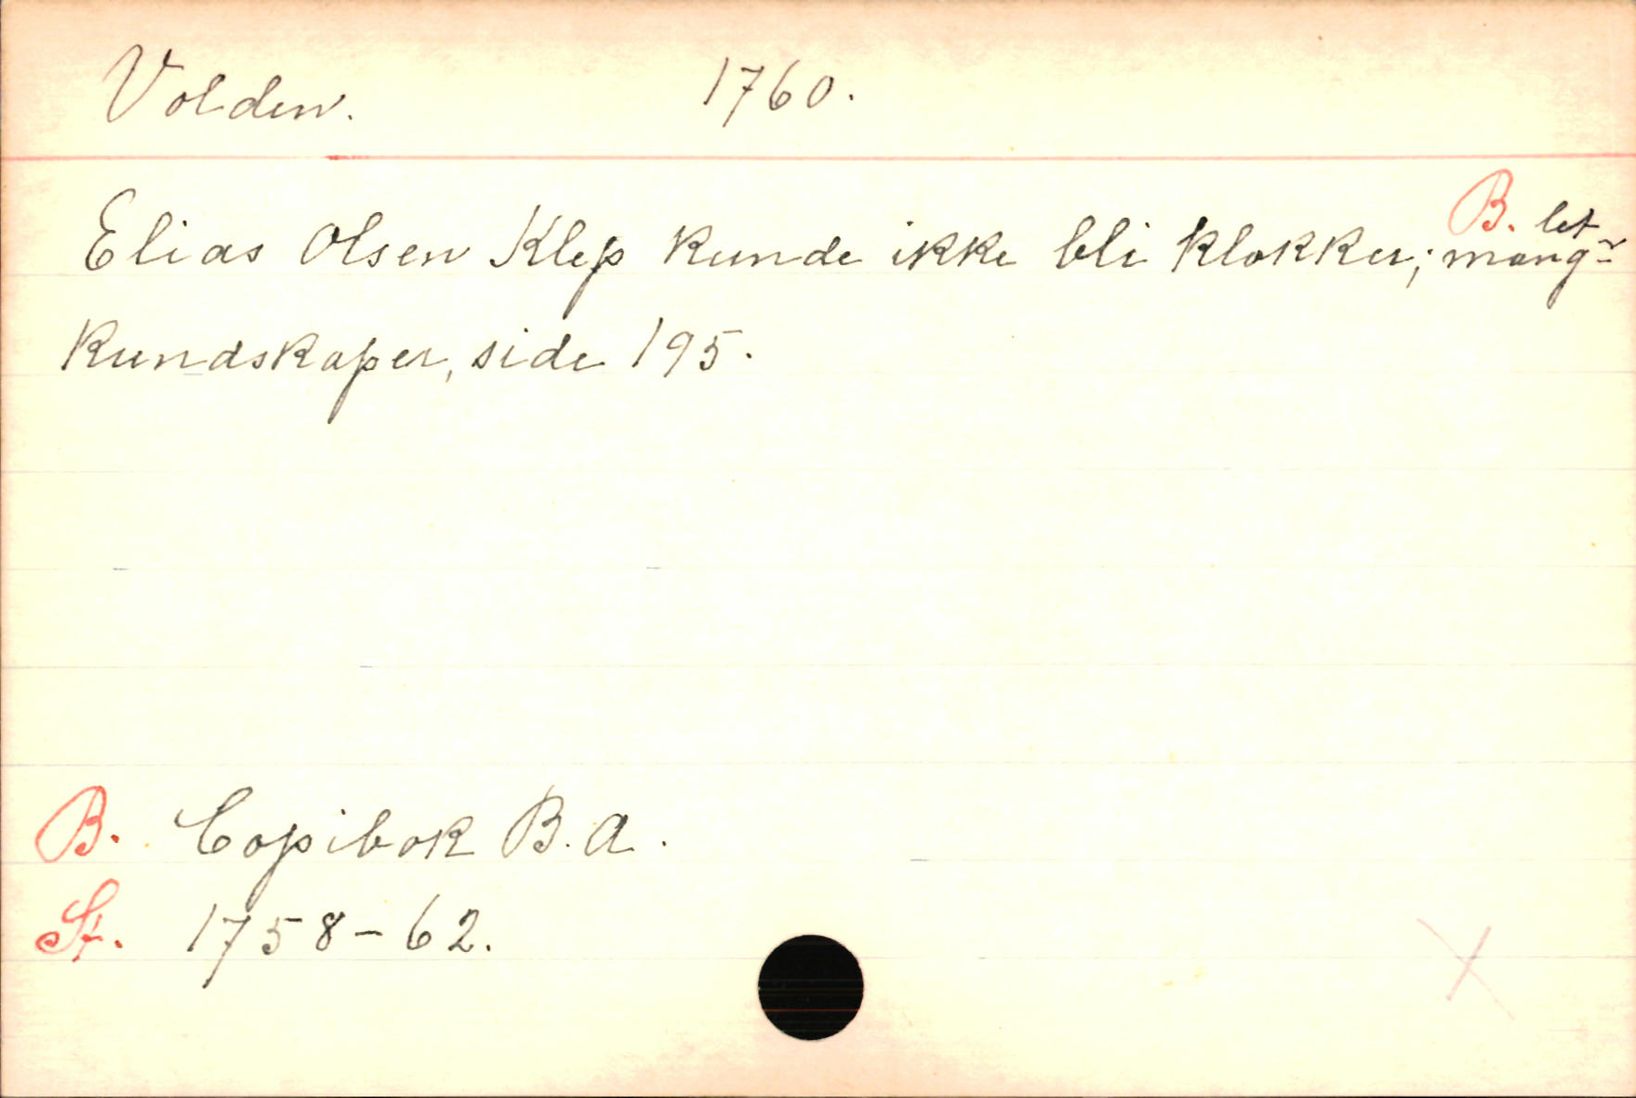 Volden. 1760.
B.
Elias Olsen Klep kunde ikke bli klokker; mang-
let
kundskaper, side 195.
B. Copibok B.A.
St. 1758-62.
X